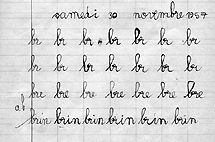 samedi 30 novembre 1957
br br br br br br br
br br br br br br br
bre bre bre bre bre bre
ab
brin brin brin brin brin brin